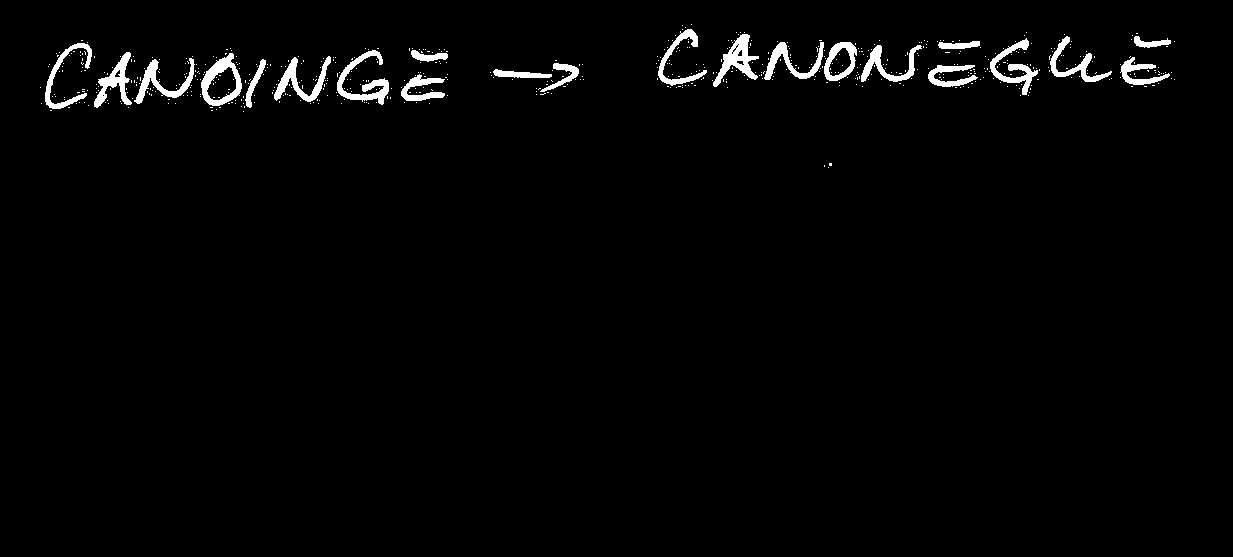 CANOINGE → CANONEGUE